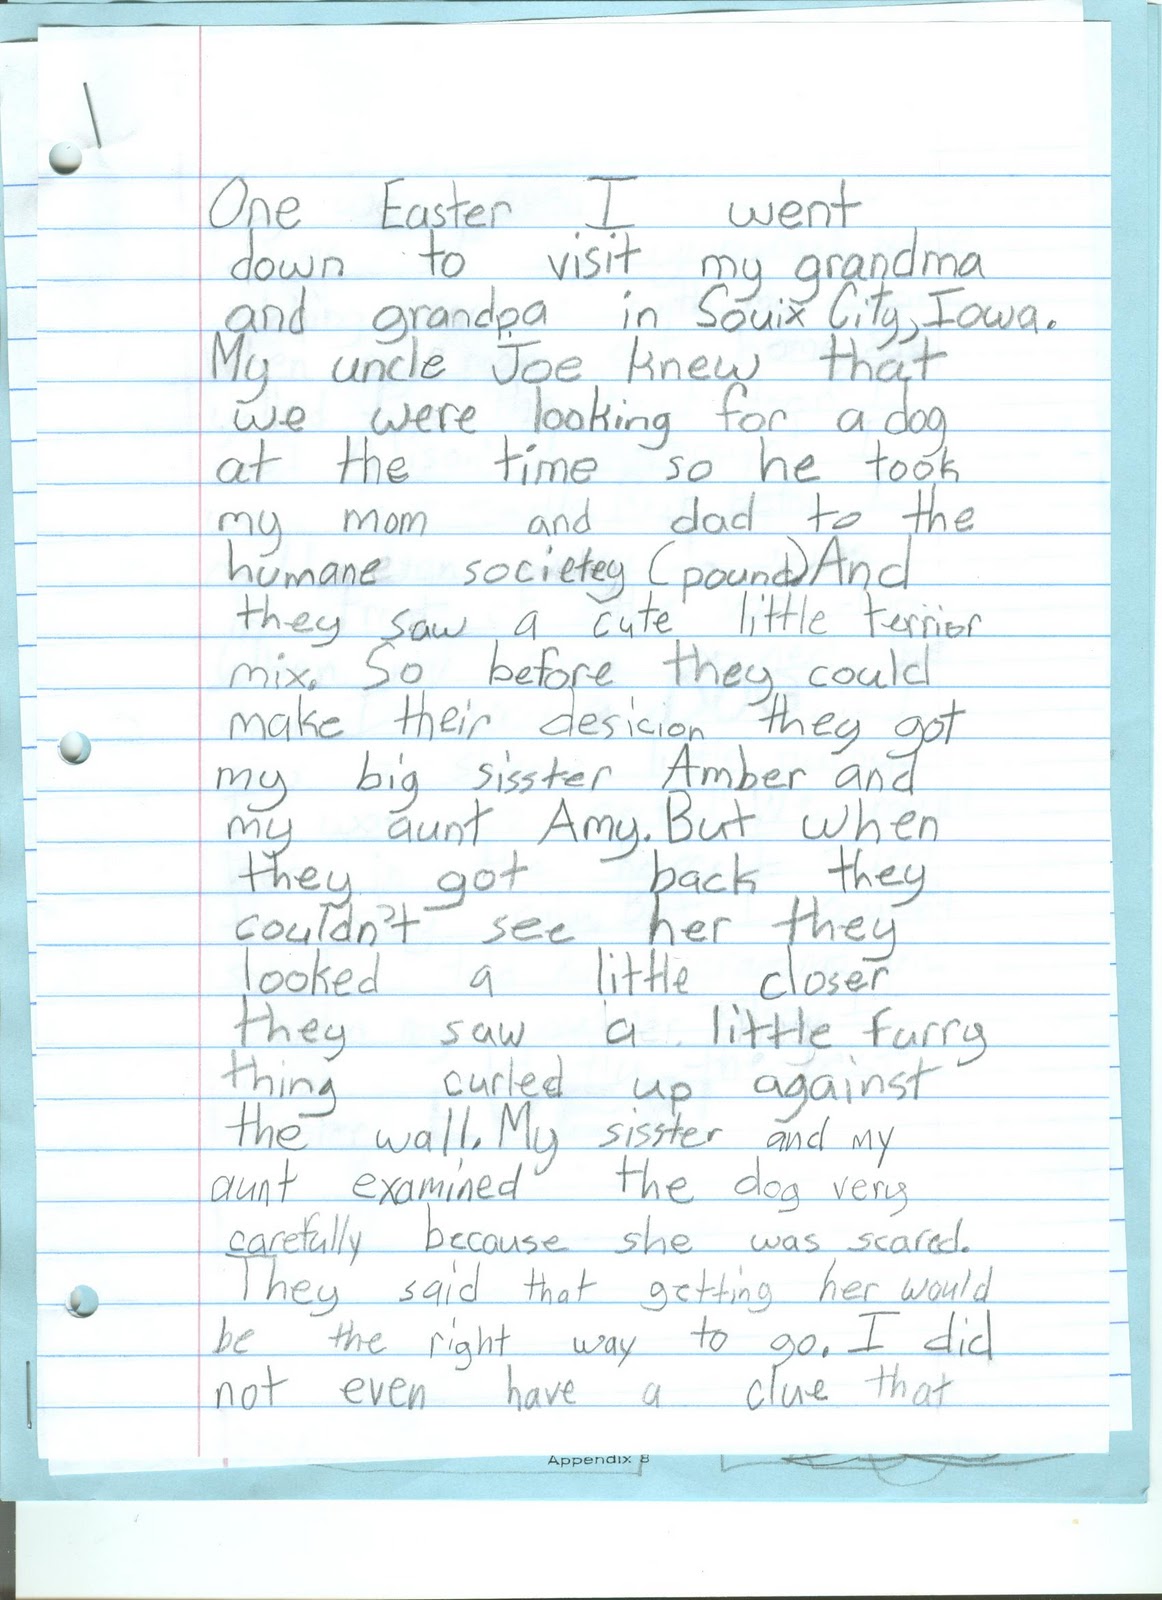 One Easter I went
down to visit my grandma
and grandpa in Souix City, Iowa.
My uncle Joe knew that
we were looking for a dog
at the time so he took
my mom and dad to the
humane societey (pound) And
they saw a cute little terrior
mix. So before they could
make their desicion they got
my big sisster Amber and
my aunt Amy. But when
they got back they
couldn't see her they
looked a little closer
they saw a little furry
thing curled up against
the wall. My sisster and my
aunt examined the dog very
carefully because she was scared.
They said that getting her would
be the right way to go. I did
not even have a clue that
Appendix 8